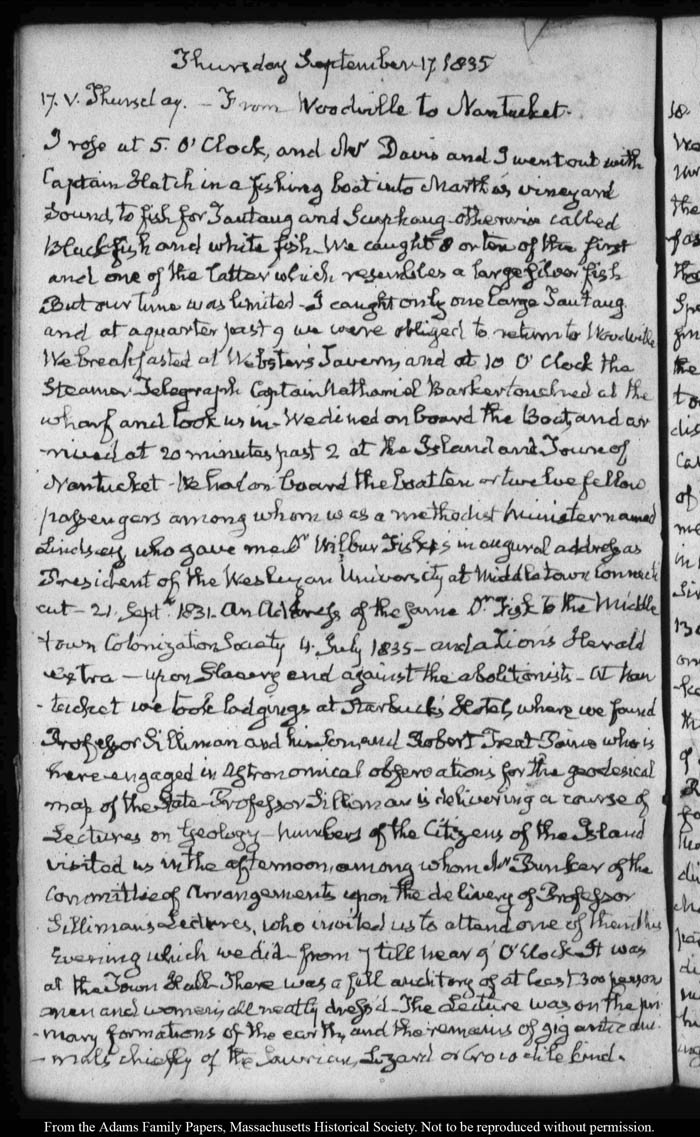 Thursday September 17. 1835
17. V. Thursday. – From Woodville to Nantucket.
I rose at 5. O'Clock, and Mr Davis and I went out with
Captain Hatch in a fishing boat into Martha's vineyard
Sound, to fish for Tautaug and Scuphaug otherwise called
Black fish and white fish. We caught 8 or ten of the first
and one of the latter which resembles a large silver fish
But our time was limited – I caught only one large Tautaug
and at a quarter past 9 we were obliged to return to Woodville
We breakfasted at Webster's Tavern, and at 10 O'Clock the
Steamer Telegraph Captain Nathaniel Barker touched at the
wharf and took us in – We dined on board the Boat, and ar
-rived at 20 minutes past 2 at the Island and Town of
Nantucket – We had on board the boat ten or twelve fellow
passengers among whom was a methodist minister named
Lindsey who gave me Dr Wilbur Fisk's inaugural address as
President of the Wesleyan University at Middletown Connecti
cut – 21. Septr 1831. An Address of the same Dr Fisk to the Middle
town Colonization Society 4. July 1835 – and a Zion's Herald
extra – upon Slavery and against the abolitionists – At Nan
-tucket we took lodgings at Starbuck's Hotel, where we found
Professor Silliman and his Son, and Robert Treat Paine who is
here engaged in Astronomical observations for the geodesical
map of the State – Professor Silliman is delivering a course of
Lectures on Geology – numbers of the Citizens of the Island
visited us in the afternoon, among whom Mr Bunker of the
Committee of Arrangements upon the delivery of Professor
Sillimans Lectures, who invited us to attend one of them this
Evening which we did – from 7 till near 9 O'Clock – It was
at the Town Hall – There was a full auditory of at least 300 person
men and women, all neatly dress'd – The Lecture was on the pri
-mary formations of the earth, and the remains of gigantic ani
-mals chiefly of the Saurian, Lizard or Crocodile kind.
From the Adams Family Papers, Massachusetts Historical Society. Not to be reproduced without permission.